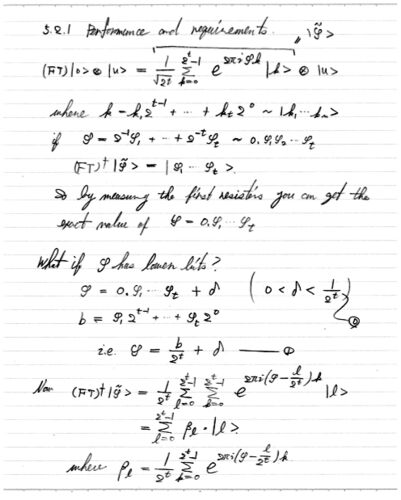 5.2.1 Performance and requirements.
"|φ̃>
(FT)|0> ⊗ |u> = 1/√2^t Σ_{k=0}^{2^t-1} e^{2πiφk} |k> ⊗ |u>
where k = k₁2^{t-1} + ··· + k_t 2^0 ~ |k₁ ··· k_n>
if φ = 2^{-1}φ₁ + ·· + 2^{-t}φ_t ~ 0.φ₁φ₂ ·· φ_t
(FT)†|φ̃> = |φ₁ ··· φ_t>.
So by measuring the first resistors you can get the
exact value of φ = 0.φ₁ ··· φ_t
What if φ has lower bits?
φ = 0.φ₁ ··· φ_t + δ ( 0 < δ < 1/2^t )
b = φ₁2^{t-1} + ·· + φ_t 2^0 ②
i.e. φ = b/2^t + δ —— ①
Now (FT)†|φ̃> = 1/2^t Σ_{l=0}^{2^t-1} Σ_{k=0}^{2^t-1} e^{2πi(φ - l/2^t)k} |l>
= Σ_{l=0}^{2^t-1} P_l · |l>.
where P_l = 1/2^t Σ_{k=0}^{2^t-1} e^{2πi(φ - l/2^t)k}